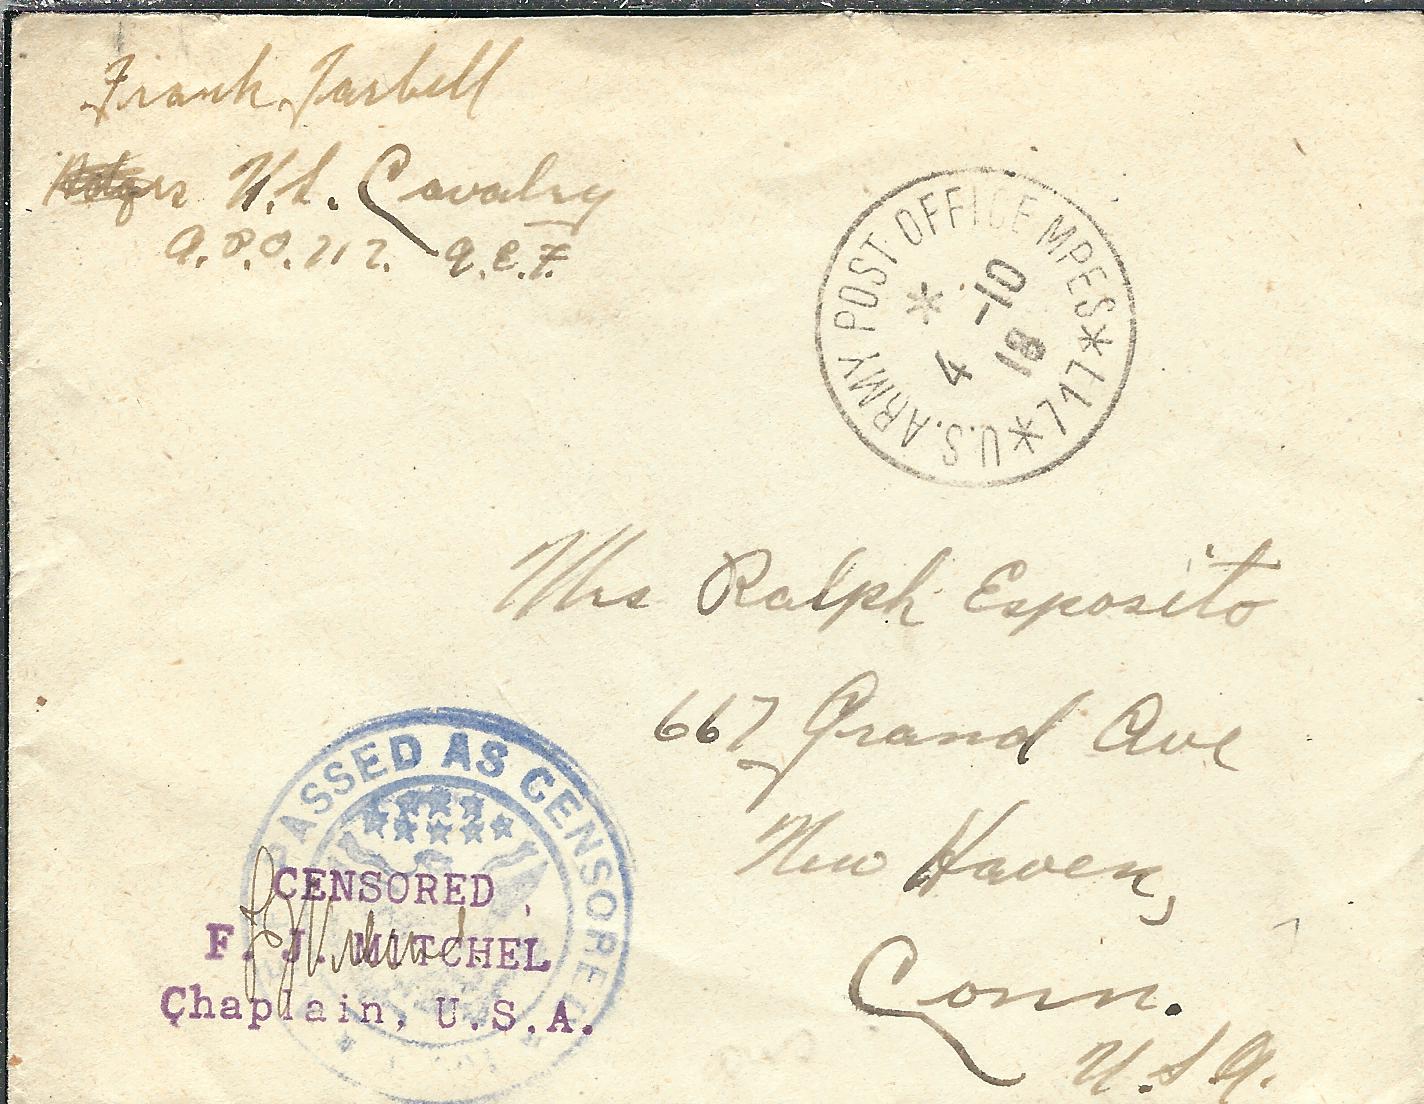 Frank Tarbell
U.S. Cavalry
A.P.O. 717. A.E.F.
U.S. ARMY POST OFFICE MPES * 717 *
* 4 -10 18
Mrs Ralph Esposito
667 Grand Ave
New Haven,
Conn.
U.S.A.
PASSED AS CENSORED
CENSORED
F. J. MITCHEL
Chaplain, U.S.A.